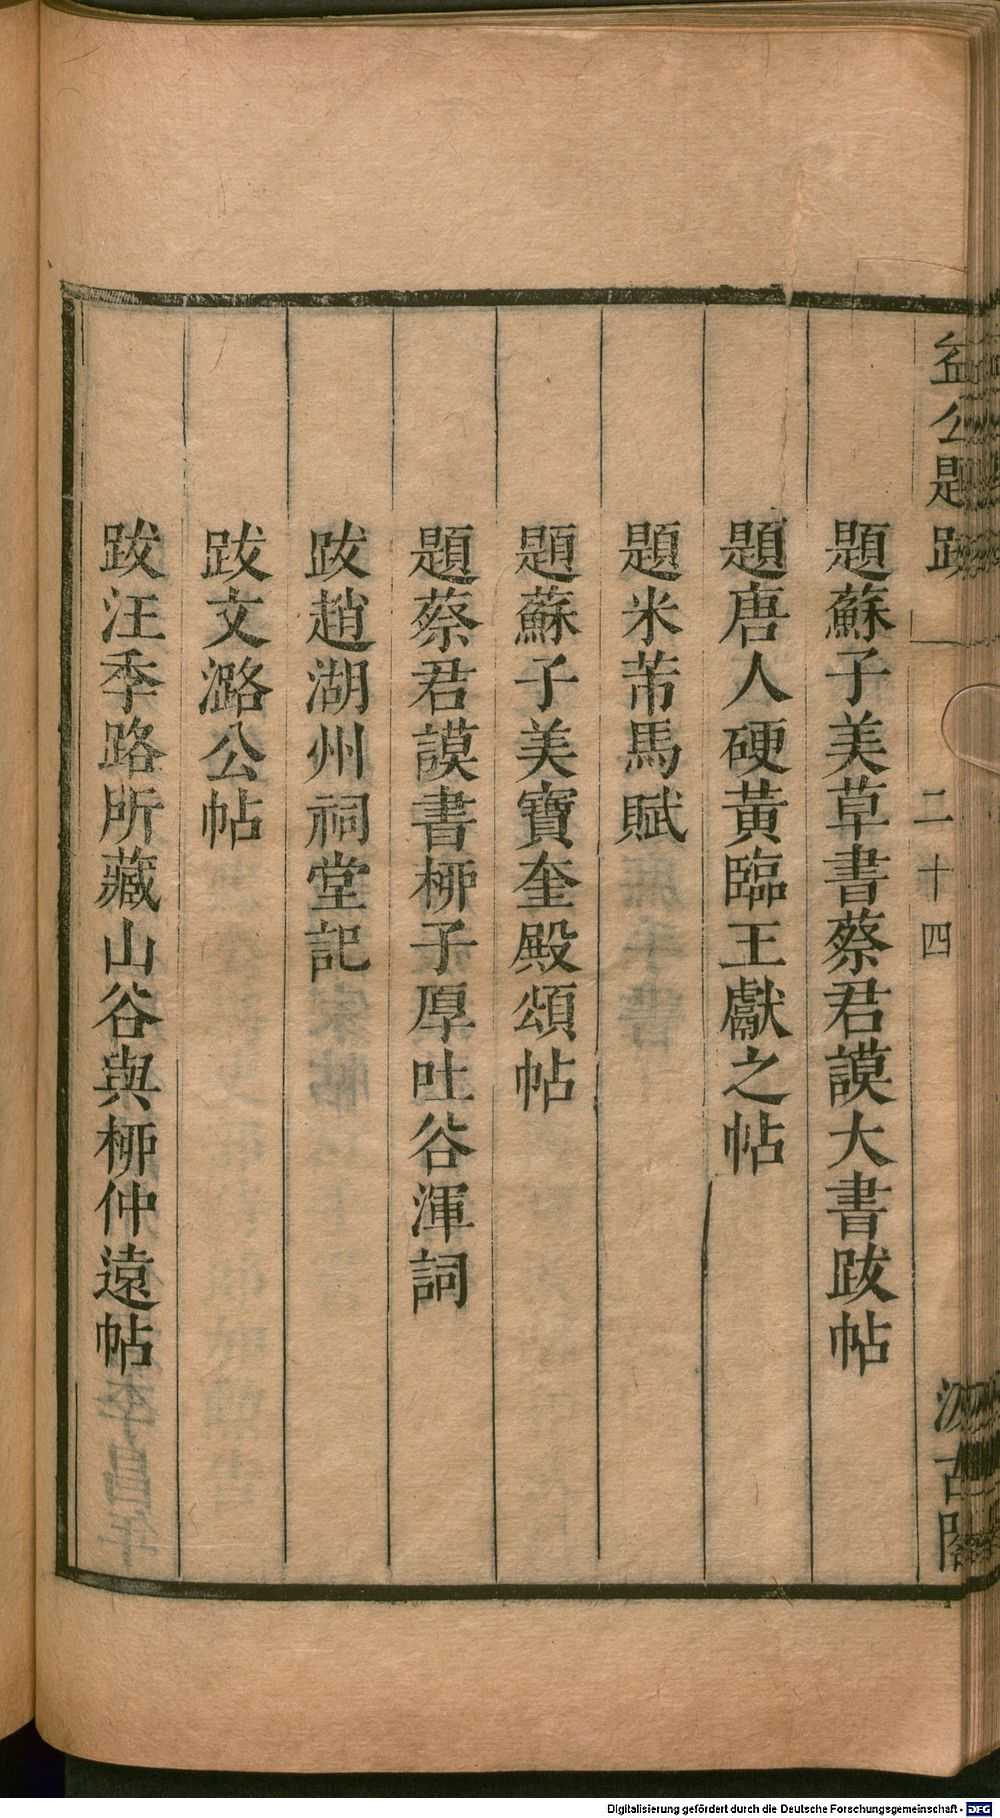 益公題跋
二十四
汲古閣
題蘇子美草書蔡君謨大書跋帖
題唐人硬黃臨王獻之帖
題米芾馬賦
題蘇子美寶奎殿頌帖
題蔡君謨書柳子厚吐谷渾詞
跋趙湖州祠堂記
跋文潞公帖
跋汪季路所藏山谷與柳仲遠帖
Digitalisierung gefördert durch die Deutsche Forschungsgemeinschaft - DFG